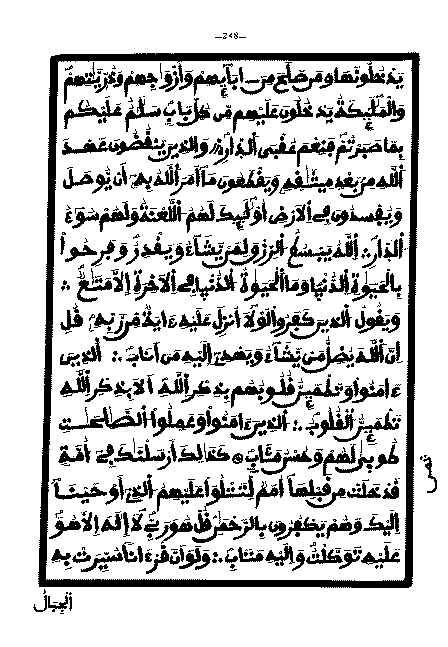 —248—
يَدْخُلُونَهَا وَمَن صَلَحَ مِنَ ـ ابَآئِهِمْ وَأَزْوَٰجِهِمْ وَذُرِّيَّٰتِهِمْ
وَالْمَلَٰٓئِكَةُ يَدْخُلُونَ عَلَيْهِم مِّن كُلِّ بَابٖ سَلَٰمٌ عَلَيْكُم
بِمَا صَبَرْتُمْ فَنِعْمَ عُقْبَى ألدِّارِ ∴ وَالذِينَ يَنقُضُونَ عَهْدَ
أللَّهِ مِنۢ بَعْدِ مِيثَٰقِهِ وَيَقْطَعُونَ مَآ أَمَرَ أللَّهُ بِهِ أَنْ يُّوصَلَ
وَيُفْسِدُونَ فِي ألَارْضِ أُوْلَٰٓئِكَ لَهُمُ أللَّعْنَةُ وَلَهُمْ سُوٓءُ
ألدِّارِ ∴ أللَّهُ يَبْسُطُ ألرِّزْقَ لِمَنْ يَّشَآءُ وَيَقْدِرُ وَفَرِحُواْ
بِالْحَيَوٰةِ ألدُّنْيَا وَمَا ألْحَيَوٰةُ ألدُّنْيَا فِي ألَاخِرَةِ إِلاَّ مَتَٰعٌ ∴
وَيَقُولُ ألذِينَ كَفَرُواْ لَوْلَآ أُنزِلَ عَلَيْهِ ءَايَةٌ مِّن رَّبِّهِ قُلِ
إِنَّ أللَّهَ يُضِلُّ مَنْ يَّشَآءُ وَيَهْدِي إِلَيْهِ مَنَ اَنَابَ ∴ ألذِينَ
ءَامَنُواْ وَتَطْمَئِنُّ قُلُوبُهُم بِذِكْرِ أللَّهِ أَلَا بِذِكْرِ أللَّهِ
تَطْمَئِنُّ ألْقُلُوبُ ∴ ألذِينَ ءَامَنُواْ وَعَمِلُواْ ألصَّٰلِحَٰتِ
طُوبَىٰ لَهُمْ وَحُسْنُ مَـَٔابٖ ۞ كَذَٰلِكَ أَرْسَلْنَٰكَ فِي أُمَّةٖ
قَدْ خَلَتْ مِن قَبْلِهَآ أُمَمٌ لِّتَتْلُوَاْ عَلَيْهِمُ ألذِي أَوْحَيْنَآ
إِلَيْكَ وَهُمْ يَكْفُرُونَ بِالرَّحْمَٰنِ قُلْ هُوَ رَبِّي لَآ إِلَٰهَ إِلاَّ هُوَ
عَلَيْهِ تَوَكَّلْتُ وَإِلَيْهِ مَتَابِ ∴ وَلَوَ اَنَّ قُرْءَاناً سُيِّرَتْ بِهِ
ألْجِبَالُ
ثمن